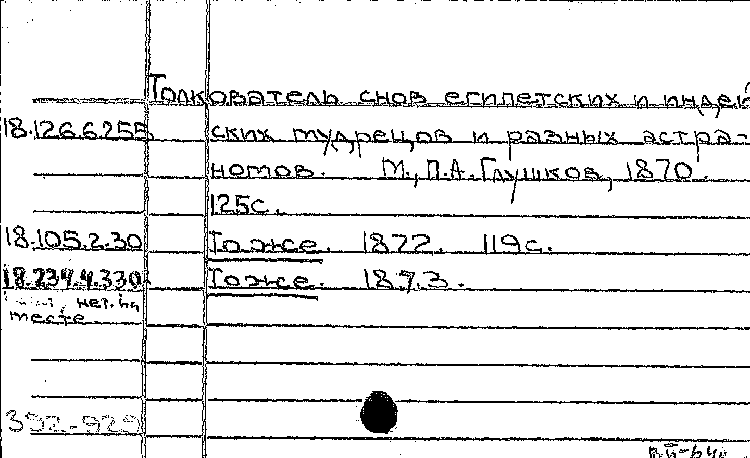 Толкователь снов египетских и индей
18.126.6.255 ских мудрецов и разных астра-
номов. М., П.А. Глушков, 1870.
125с.
18.105.2.30 То же. 1872. 119с.
18.234.4.330 То же. 1873.
нет. на
месте
392-929